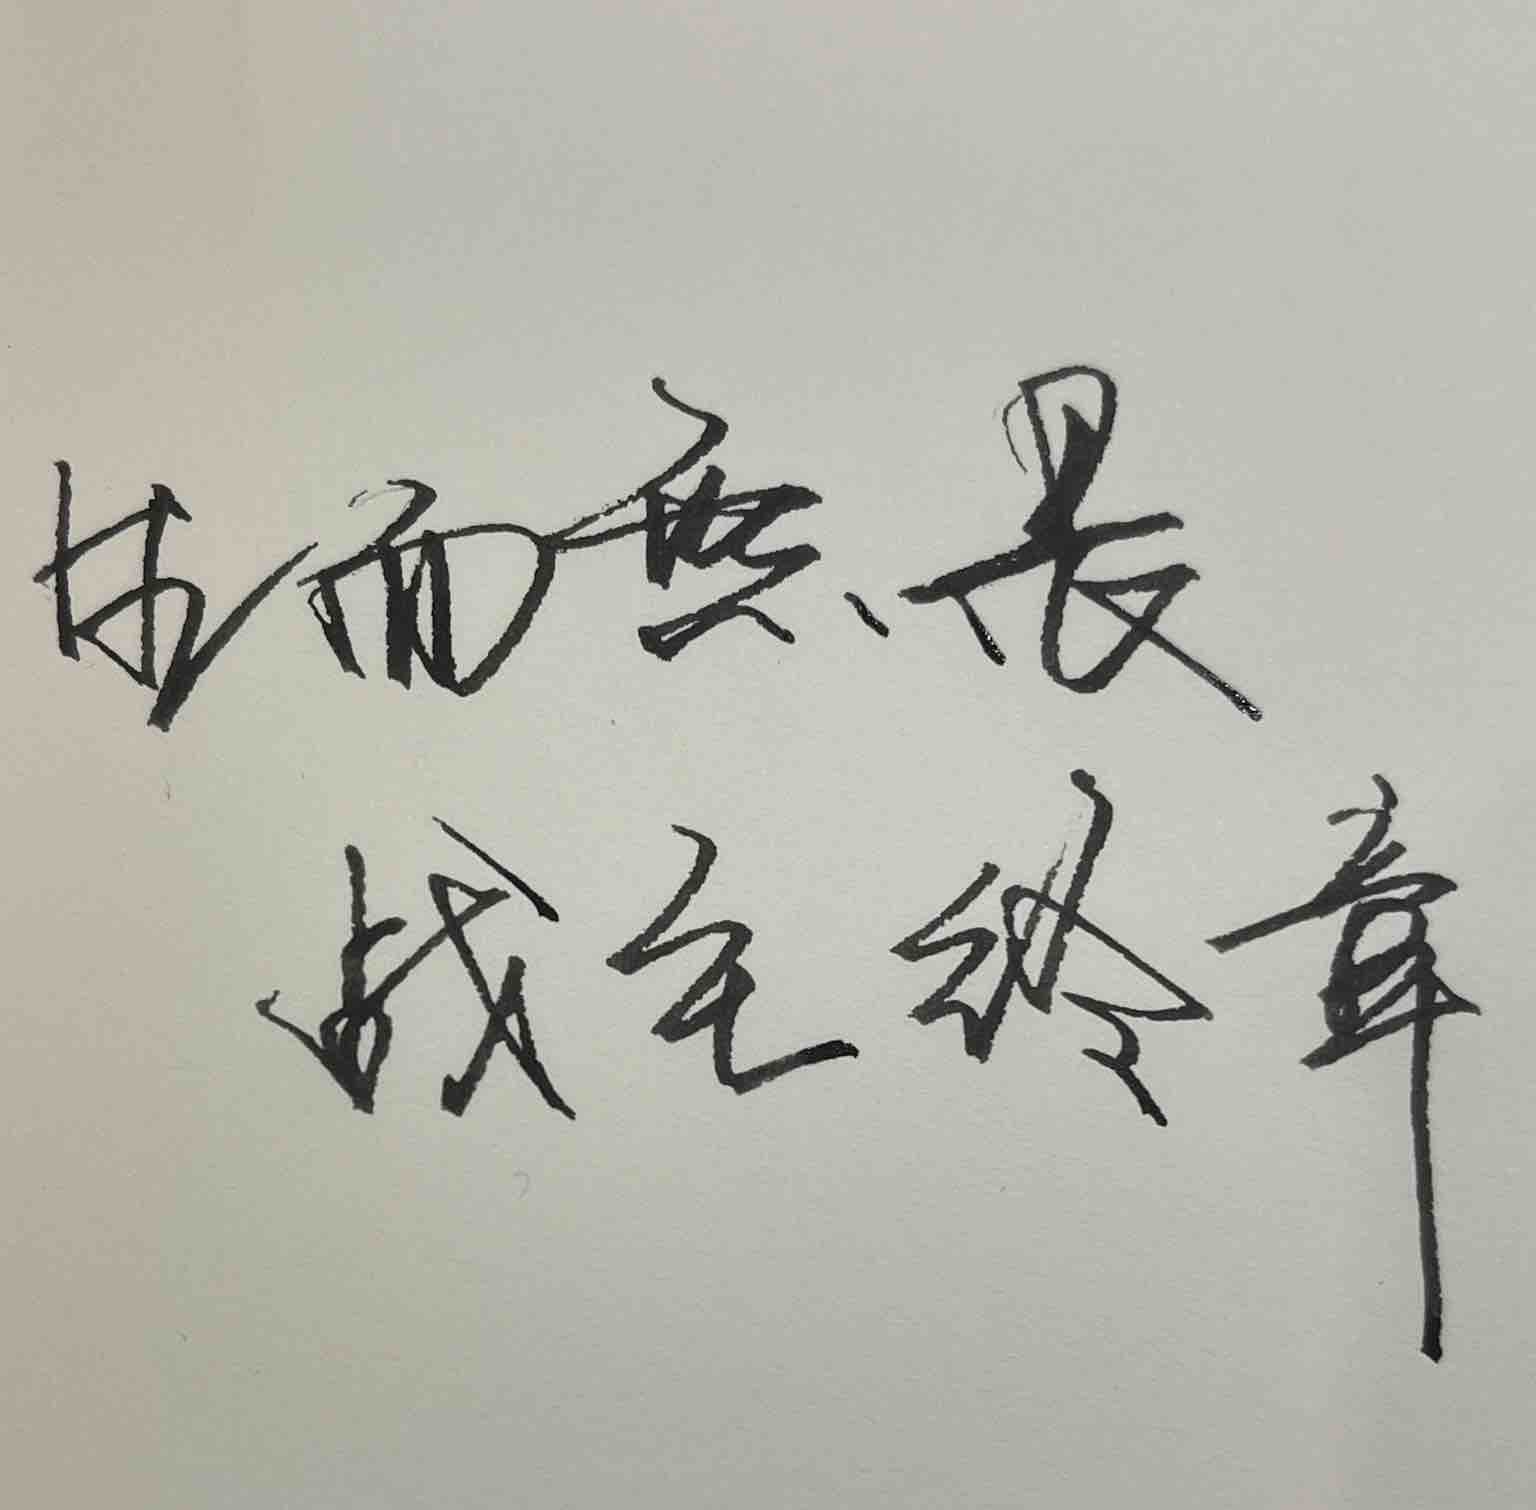 生而無畏
战至终章